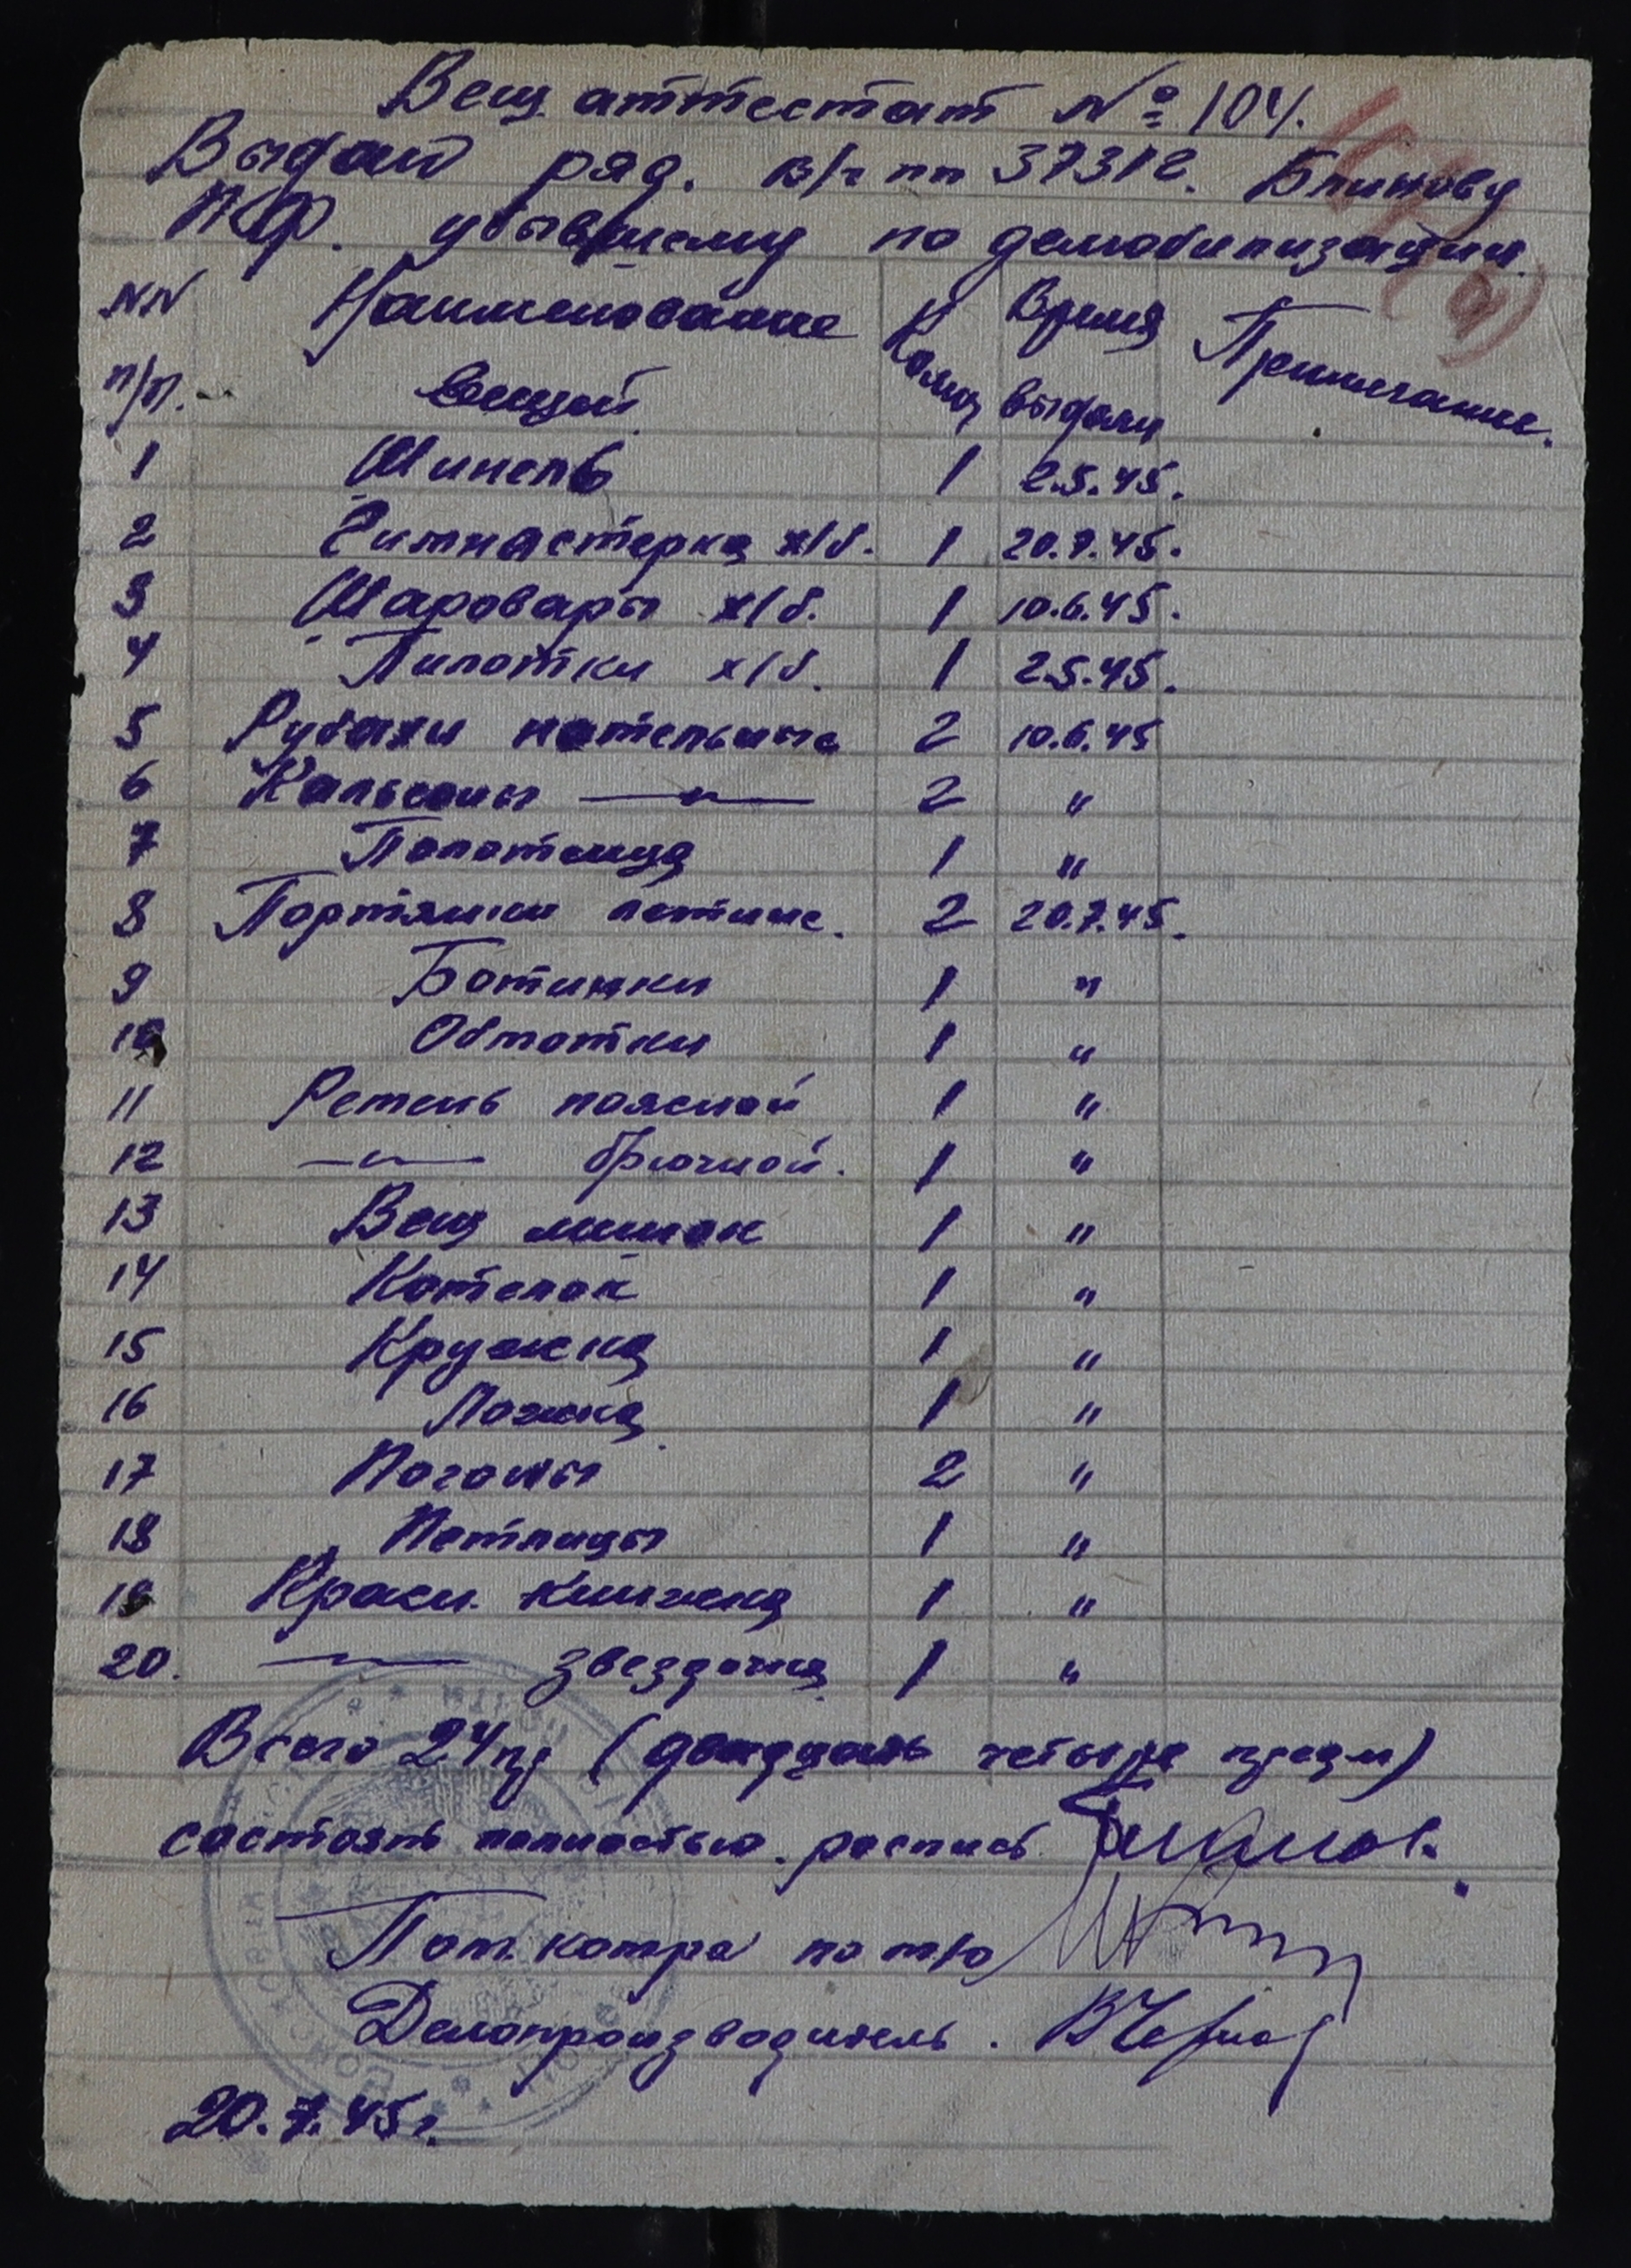 Вещ. аттестат № 104.
Выдан ряд. в/ч пп 37312. Блинову
П.Ф. убывшему по демобилизации.
NN Наименование Колич Время Примечание.
п/п. вещей выдачи
1 Шинель 1 2.5.45.
2 Гимнастерка х/б. 1 20.7.45.
3 Шаровары х/б. 1 10.6.45.
4 Пилотки х/б. 1 2.5.45.
5 Рубахи нательные 2 10.6.45
6 Кальсоны —"— 2 "
7 Полотенца 1 "
8 Портянки летние. 2 20.7.45.
9 Ботинки 1 "
10 Обмотки 1 "
11 Ремень поясной 1 "
12 —"— брючной. 1 "
13 Вещ мешок 1 "
14 Котелок 1 "
15 Кружка 1 "
16 Ложка 1 "
17 Погоны 2 "
18 Петлицы 1 "
19 Красн. книжка 1 "
20. —"— звездочка 1 "
Всего 24 пр (двадцать четыре предм)
состоять полностью. роспись Блинов.
Пом. по
Делопроизводитель.
20.7.45г.